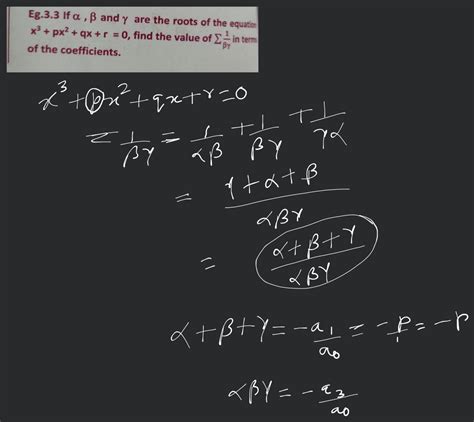 Eg.3.3 If α , β and γ are the roots of the equation
x³ + px² + qx + r = 0, find the value of Σ 1/βγ in term
of the coefficients.
x³ + px² + qx + r = 0
Σ 1/βγ = 1/αβ + 1/βγ + 1/γα
= γ + α + β / αβγ
= α + β + γ / αβγ
α + β + γ = -a₁/a₀ = -p/1 = -p
αβγ = -a₃/a₀